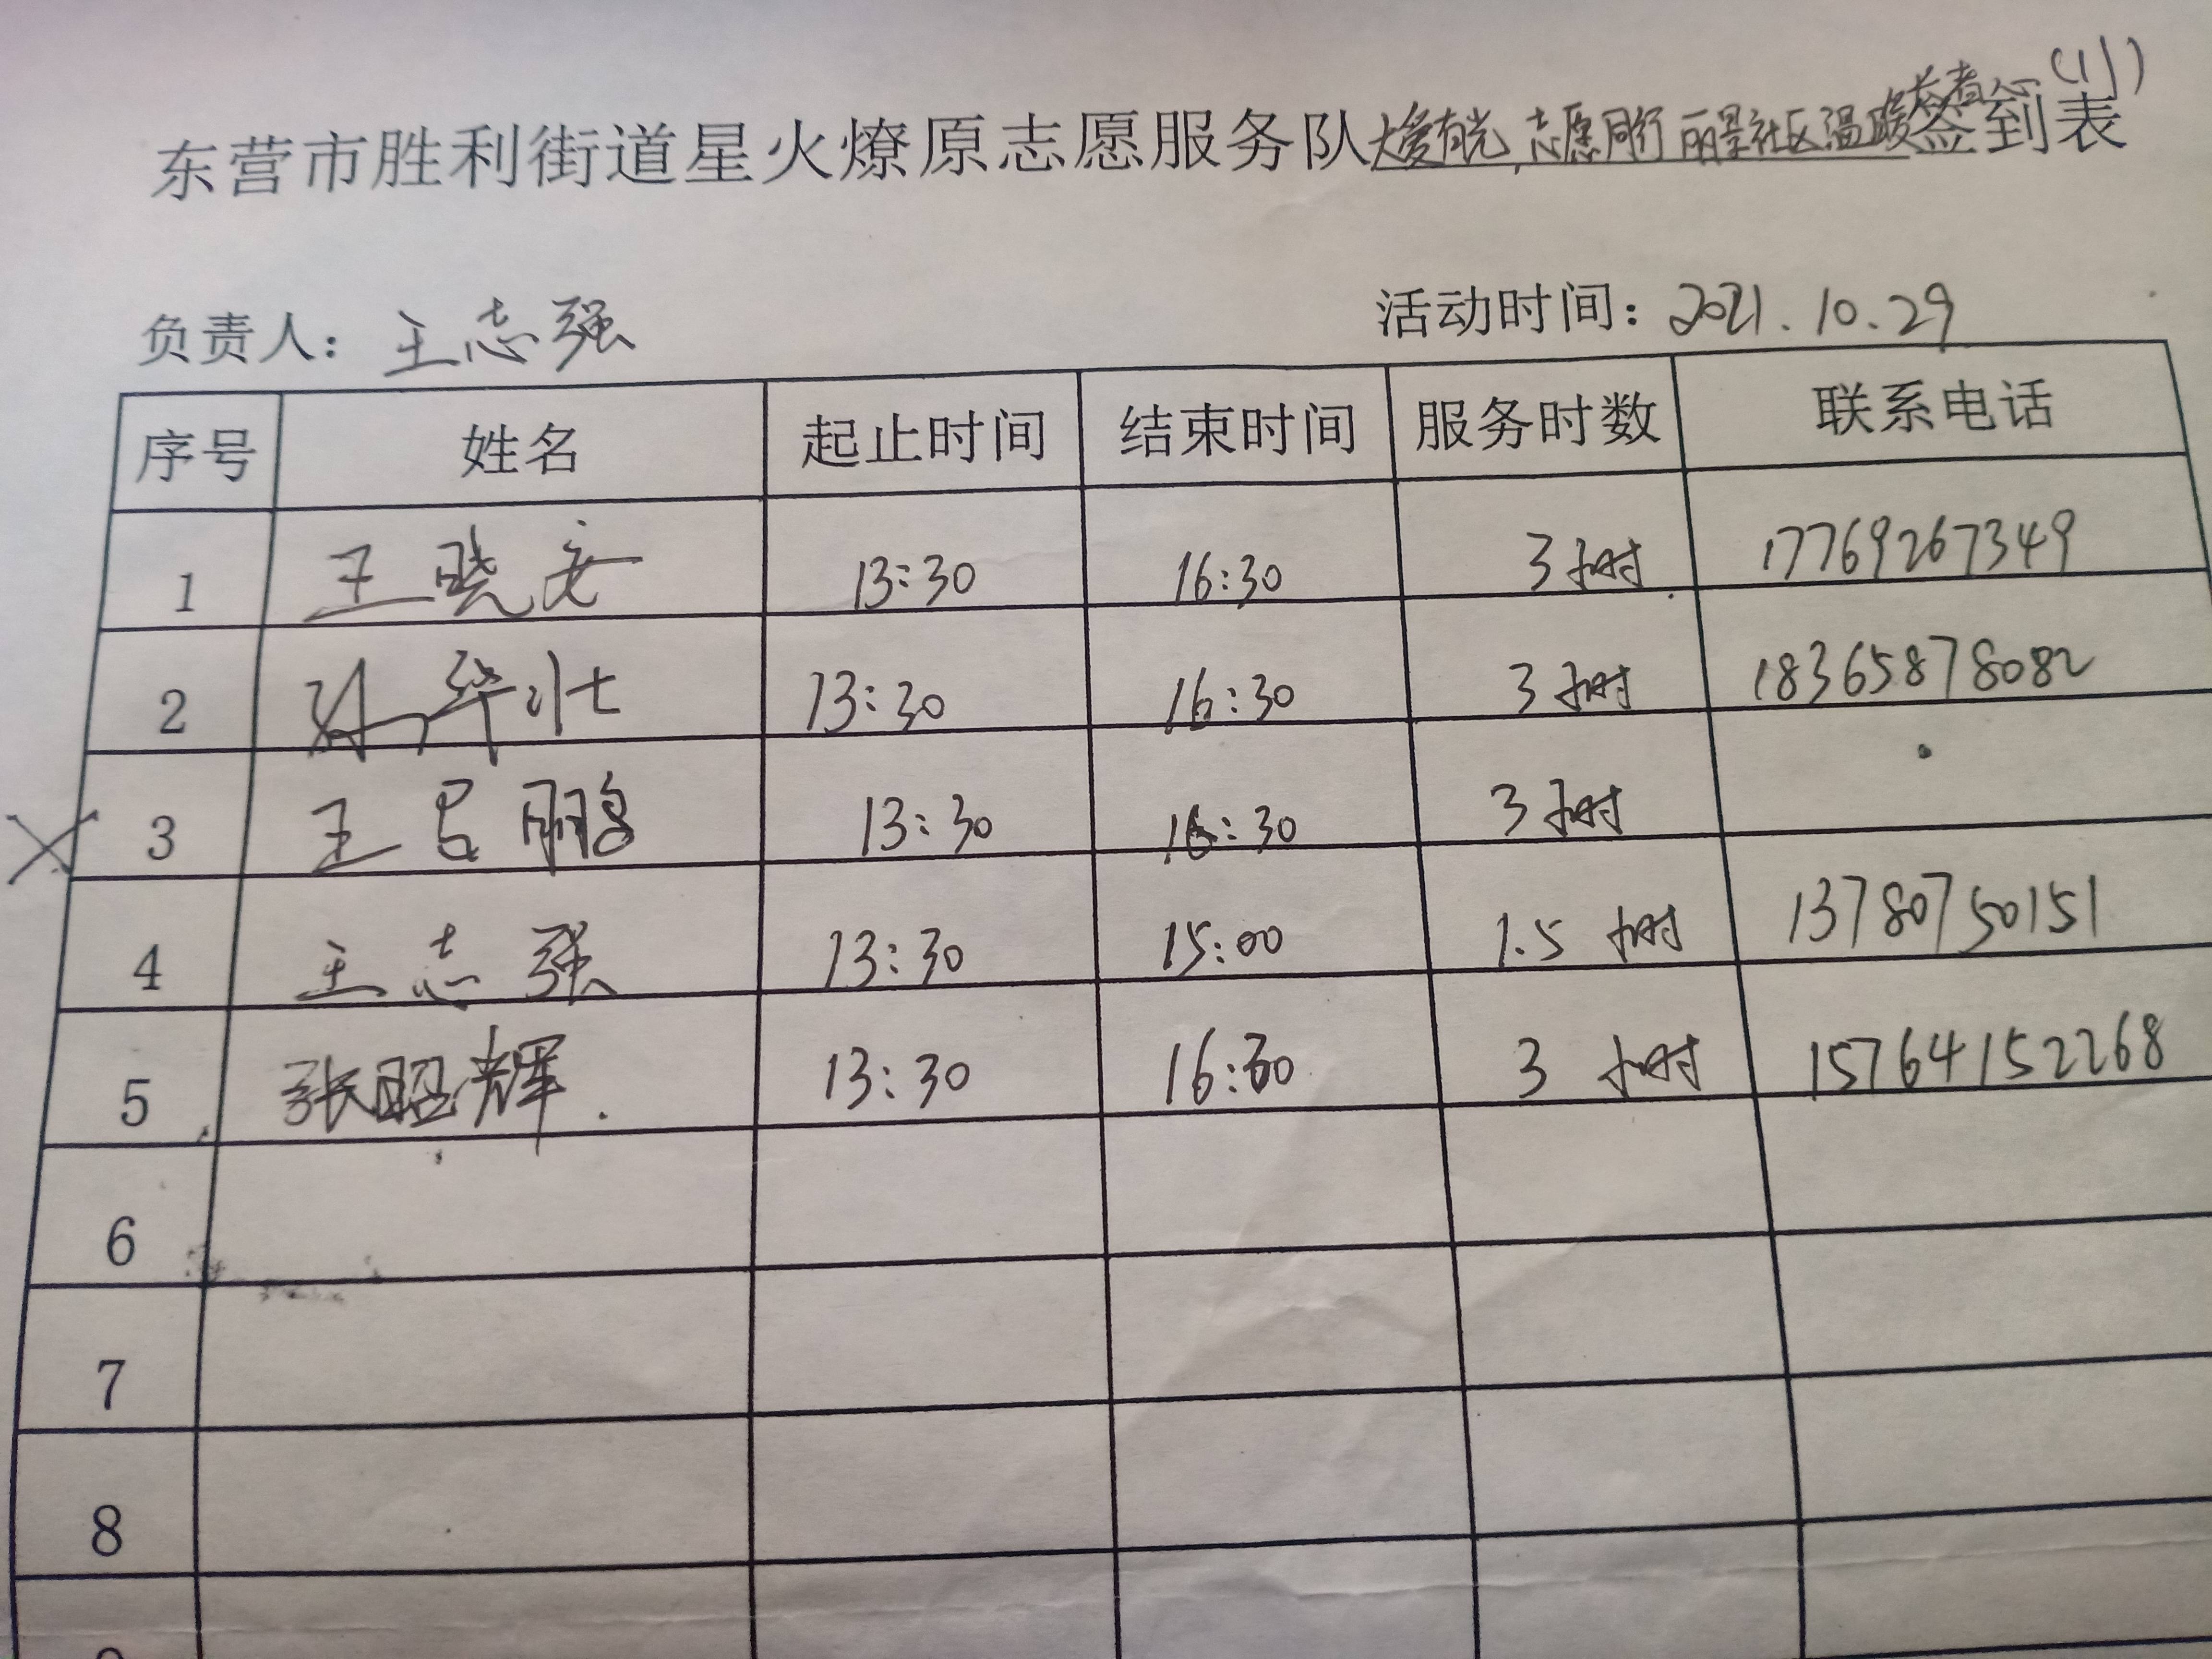 (1)
东营市胜利街道星火燎原志愿服务队大爱有光,志愿同行 丽景社区温暖长者心签到表
负责人: 王志强 活动时间: 2021.10.29
序号 姓名 起止时间 结束时间 服务时数 联系电话
1 王晓安 13:30 16:30 3小时 17769267349
2 孙华壮 13:30 16:30 3小时 18365878082
3 王昌鹏 13:30 16:30 3小时
4 王志强 13:30 15:00 1.5小时 13780750151
5 张昭辉. 13:30 16:30 3小时 15764152268
6
7
8